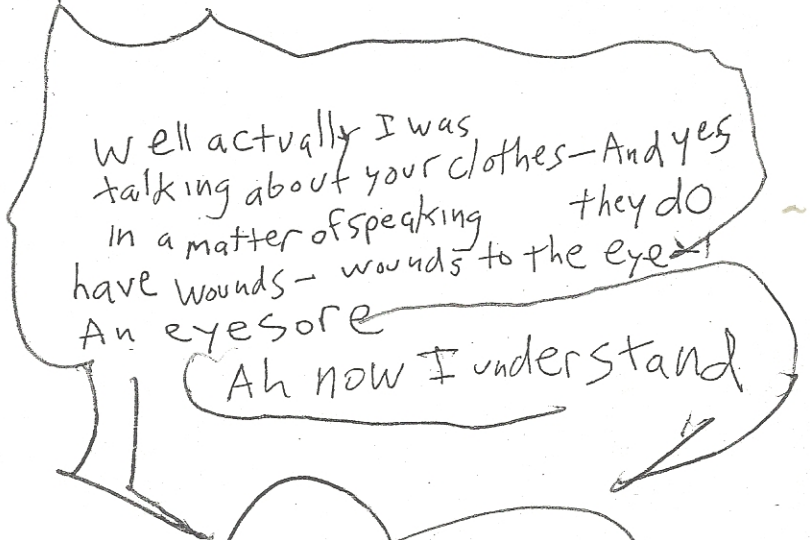 Well actually I was
talking about your clothes—And yes
in a matter of speaking they do
have wounds— wounds to the eye—
An eyesore
Ah now I understand